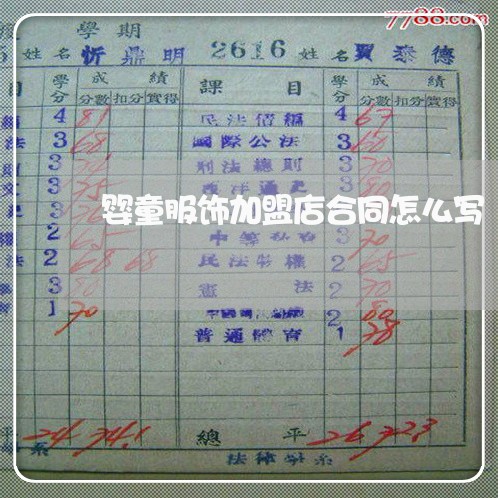 7788.com
學期
姓名 忻鼎明 2616 姓名 賈泰德
目 學分 成績 課目 學分 成績
分數 扣分 實得 分數 扣分 實得
4 81 民法債編 4 67
法 3 68 國際公法 3 60
3 刑法總則 3 70
3 75 西洋通史 3 80
婴童服饰加盟店合同怎么写
2 3 70
法 2 68 68 民法物權 2 65
3 80 憲法 2 70
1 70 2 80
普通體育 1 78
平 24 74.1 總平 26 72.3
系 法律學系